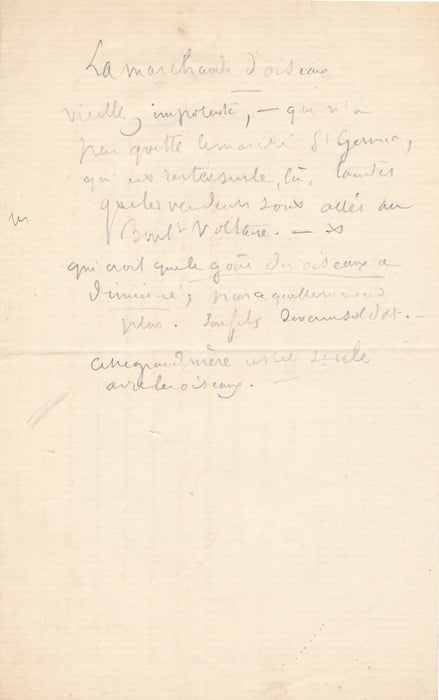 La marchande d'oiseaux
vieille, impotente, — qui n'a
pas quitté le marché St Germain,
qui est restée seule, là, tandis
que les vendeurs sont allés au
Boul^t Voltaire. —
qui croit que le goût des oiseaux a
diminué, parce qu'elle n'en vend
plus. Son fils devenu soldat. —
cette grand mère restée seule
avec les oiseaux. —